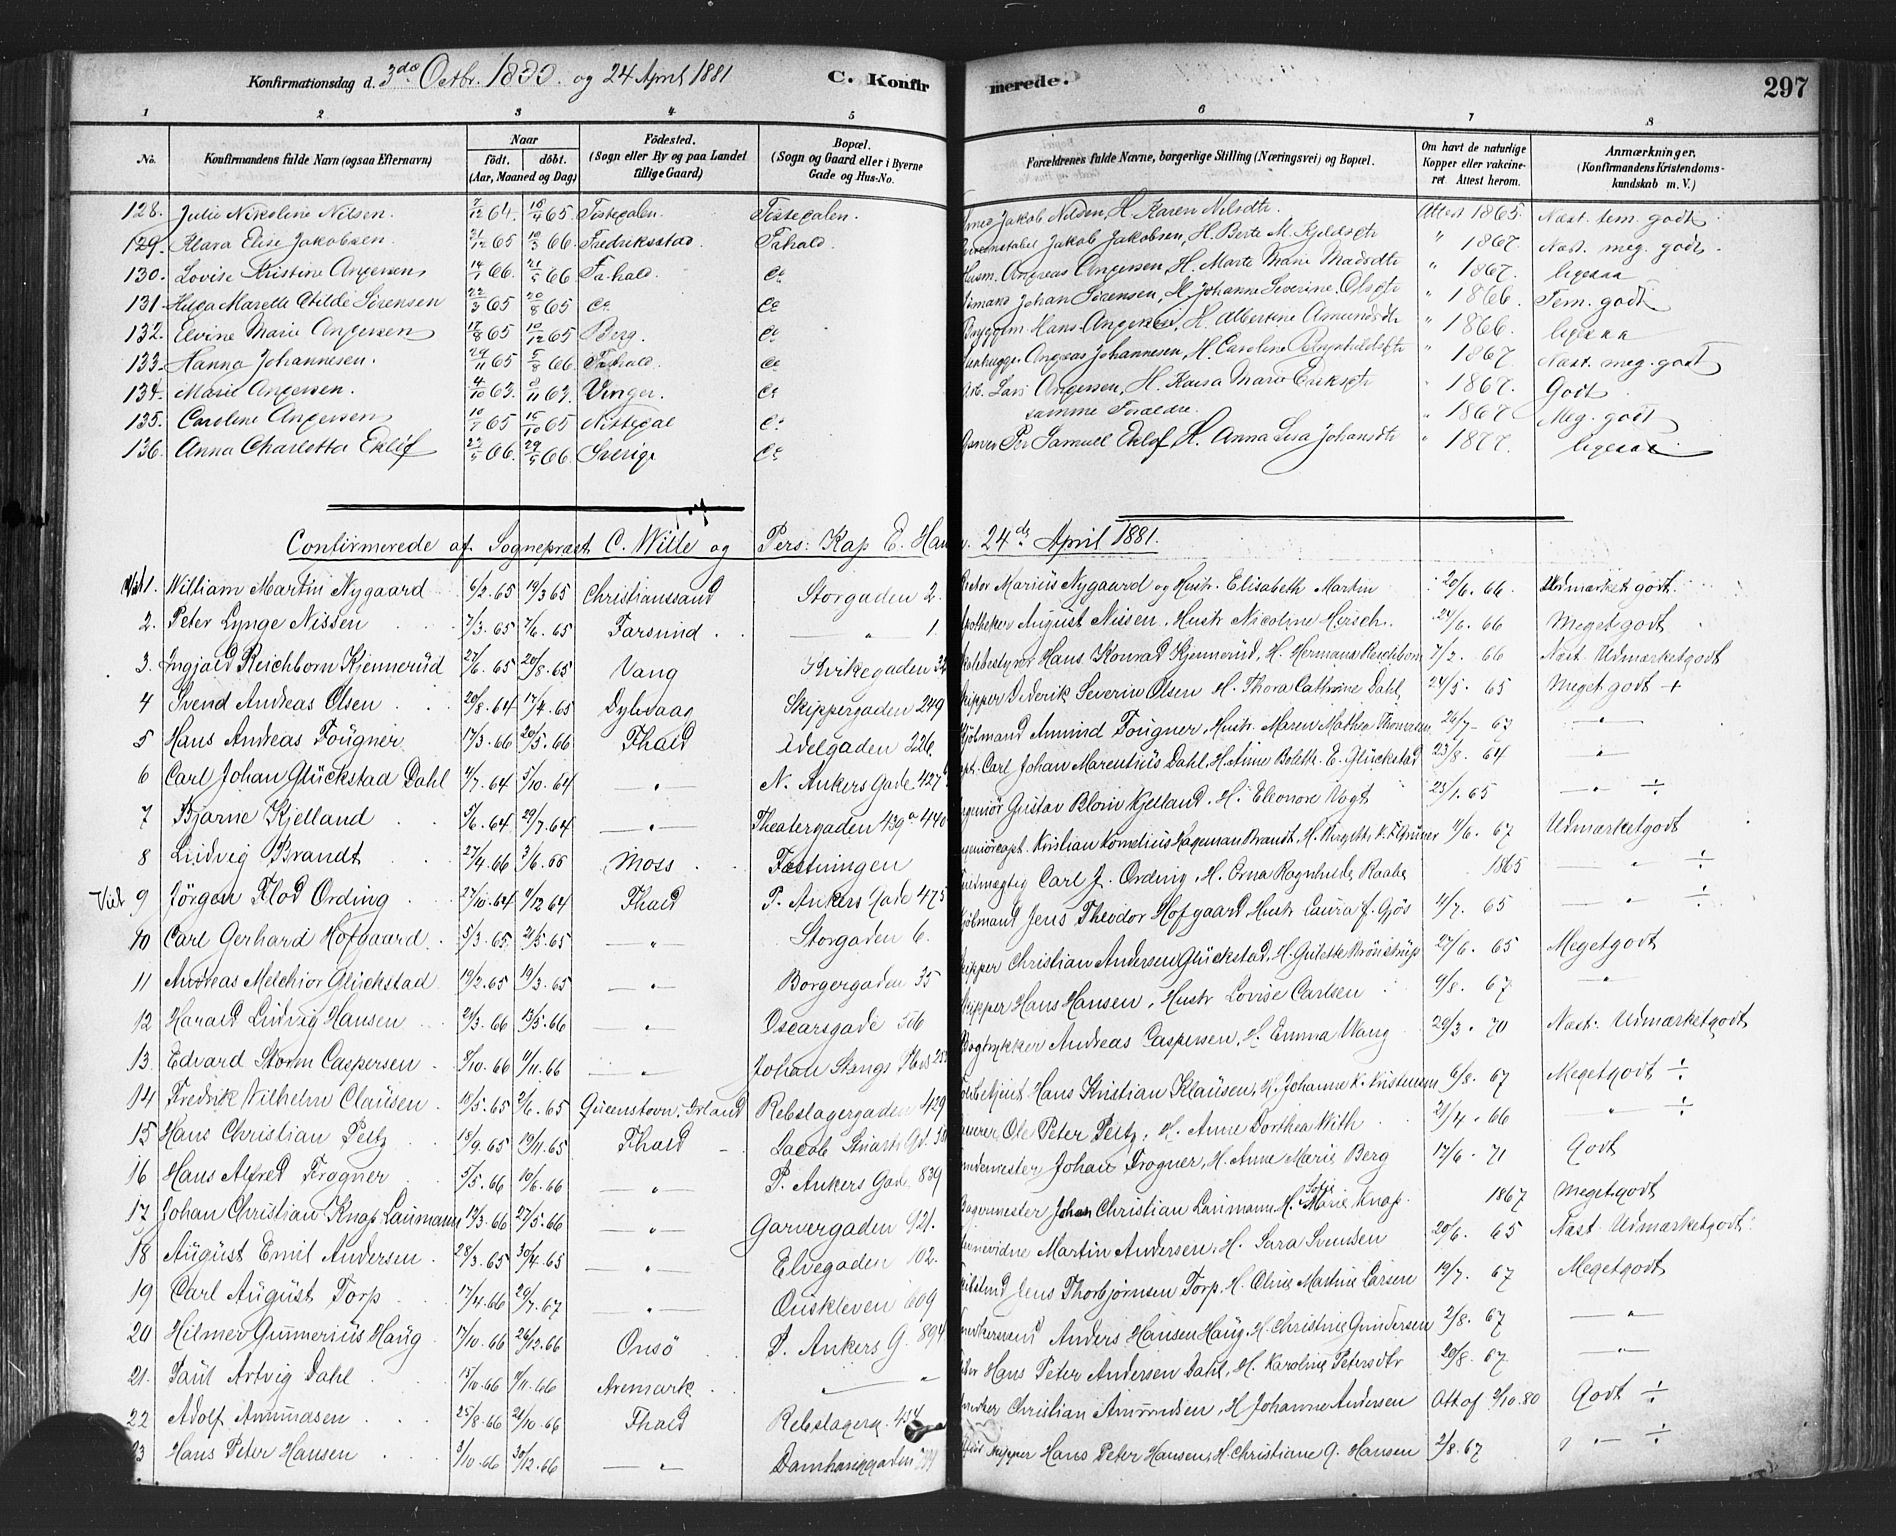 Konfirmationsdag d. 3die Octbr. 1880. og 24 April 1881 C. Konfirmerede. 297
1 2 3 4 5 6 7 8
No. Konfirmandens fulde Navn (ogsaa Efternavn) Naar födt. döbt. (Aar, Maaned og Dag) Födested. (Sogn eller By og paa Landet tillige Gaard) Bopæl. (Sogn og Gaard eller i Byerne Gade og Hus-No. Forældrenes fulde Navne, borgerlige Stilling (Næringsvei) og Bopæl. Om havt de naturlige Kopper eller vakcineret Attest herom. Anmærkninger, (Konfirmandens Kristendomskundskab m. V.)
128. Julie Nikoline Nilsen. 7/12 64. 16/4 65 Tistedalen. Tistedalen. Jakob Nilsen, H. Karen Nilsdtr. Attest 1865. Næst. tem. godt
129. Klara Elise Jakobsen. 21/12 65 10/3 66. Fredriksstad. Fr.hald. Jakob Jakobsen, H. Berte M. Kjeldsdtr " 1867. Næst. meg. godt.
130. Lovise Kristine Andersen 14/1 66. 21/5 66 Fr.hald. do Husm. Andreas Andersen, H. Marte Marie Madsdtr " 1867. ligesaa
131. Hilda Marelle Otilde Sörensen 22/3 65 20/8 65 do do Johan Sörensen, H. Johanne Severine Olsdtr " 1866. Tem. godt
132. Elvine Marie Andersen 17/8 65 10/12 65 Berg. do Hans Andersen, H. Albertine Amundsdtr " 1866. ligesaa
133. Hanna Johannesen. 24/11 65 5/8 66 Fr.hald. do Andreas Johannesen, H. Caroline Brynhildsdtr " 1867. Næst. meg. godt
134. Marie Andersen. 4/10 63. 8/11 63. Vinger. do Arb. Lars Andersen, H. Kaisa Marie Eriksdtr " 1867. Godt
135. Caroline Andersen 10/7 65 15/10 65 Nittedal do samme Forældre. " 1867 Meg. godt
136. Anna Charlotta Eklöf 22/5 66. 29/5 66. Sverige do Samuel Eklöf, H. Anna Lisa Johansdtr " 1877. ligesaa
Confirmerede af Sognepræst C. Wille og Pers: Kap E. Han 24de April 1881.
1. William Martin Nygaard 6/2.65 19/3 65 Christianssand Storgaden 2. Rector Marius Nygaard og Hustr. Elisabeth Martin 20/6. 66. Udmærket godt.
2. Peter Lynge Nissen 7/3.65 7/6.65 Farsund " 1. Apotheker August Nissen, Hustr Nicoline Hirsch. 24/6. 66 Meget godt
3. Ingjald Reichborn Kjennerud 27/6.65 20/8.65 Vang Kirkegaden 32 Skolebestyrer Hans Konrad Kjennerud, H. Hermana Reichborn 7/2. 66 Næst Udmærketgodt
4 Svend Andreas Olsen 20/8.64 17/4.65 Dybvaag Skippergaden 249 Skipper Diderik Severin Olsen H. Thora Cathrine Dahl 24/5. 65 Meget godt +
5 Hans Andreas Fougner 17/3.66 20/5.66 Fhald Adelgaden 226. Kjöbmand Amund Fougner, Hustr. Maren Mathea Thoresen 26/7 - 67 "
6 Carl Johan Glückstad Dahl 4/7.64 5/10.64 " N. Ankers Gade 427 Capt. Carl Johan Marentius Dahl, H. Boleth. E. Glückstad 23/8. 64 "
7 Bjarne Kjelland 5/6.64 29/7.64 " Theatergaden 439a 440 Ingeniör Gustav Blom Kjelland, H. Eleonore Vogt 23/1.65 " ÷
8 Ludvig Brandt 27/4.66 3/6.66 Moss Fæstningen Ingeniörcapt. Kristian Kornelius Hageman Brandt, H. 4/6. 67 Udmærketgodt
Viet 9 Jörgen Flod Ording 27/10.64 4/12 64 Fhald P. Ankers Gade 475 Fuldmægtig Carl J. Ording, H. Erna Ragnhilda Raabe 1865 " ÷
10 Carl Gerhard Hofgaard 5/3.65. 21/5.65 " Storgaden 6. Kjöbmand Jens Theodor Hofgaard, Hustr Laura J. Gjös 11/7. 65 " ÷
11 Andreas Melchior Glückstad 19/2.65 19/3.65 " Borgergaden 35 Skipper Christian Andersen Glückstad, H. Gulette Brönstrup 27/6. 65 Megetgodt
12 Harald Ludvig Hansen 21/3.66 13/5.66 " Oscarsgade 516 Skipper Hans Hansen, Hustr Lovise Carlsen 4/8. 67 "
13 Edvard Storm Caspersen 8/10.66 4/11.66 " Johan Stangs Plads 253 Bogtrykker Andreas Caspersen, H. Emma Wang 29/3. 70 Næst. Udmærketgodt
14 Fredrik Wilhelm Clausen 18/5.65 2/6.65 Queenstovn, Irland Rebslagergaden 429 Toldbetjent Hans Kristian Klausen, H. Johanne K. Kristensen 6/8. 67 Megetgodt ÷
15 Hans Christian Peltz 18/9.65 19/11.65 Fhald Jacob Stuarts Gd. Ole Peter Peltz, H. Anne Dorthea With 21/4. 66 " ÷
16 Hans Alfred Frogner 5/5.66 10/6.66 " P. Ankers Gade 839 Johan Frogner, H. Anne Marie Berg 17/6. 71 Godt
17 Johan Christian Knap Laumann 17/3.66 27/5.66 " Garvergaden 421. Bagermester Johan Christian Laumann H. Sofie Marie Knap. 1867 Megetgodt
18 August Emil Andersen 28/3.65 30/4.65 " Elvegaden 102. Martin Andersen, H. Sara Svendsen 20/6. 65 Næst Udmærketgodt
19 Carl August Torp 17/4.66 29/7.67 " Ouskleven 609 Jens Thorbjörnsen Torp, H. Oline Martine Larsen 19/7. 67 Megetgodt
20 Hilmer Gunnerius Haug 17/10.66 26/12.66 Onsö P. Ankers G. 894 Anders Hansen Haug, H. Christine Gundersen 2/8. 67 "
21. Paul Artvig Dahl 15/10.66 11/11.66 Aremark " Hans Peter Andersen Dahl, H. Karoline Petersdtr 20/8. 67 "
22 Adolf Amundsen 25/8.66 21/10.66 Fhald Rebslagerg. 437 Christian Amundsen, H Johanne Andersen Att af 2/10.80 Godt ÷
23 Hans Peter Hansen 3/10.66 30/12.66 " Damhauggaden Skipper Hans Peter Hansen, H. Christiane G. Hansen 2/8.67 " ÷